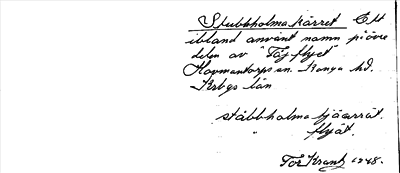 Stubbholmakärret Ett
ibland använt namn på övre
delen av "Tåj flyet"
Hovmantorps sn. Konga hd.
Krbgs län
stàbbholma tjäärrät.
" flyät.
Tor Krantz 1948.